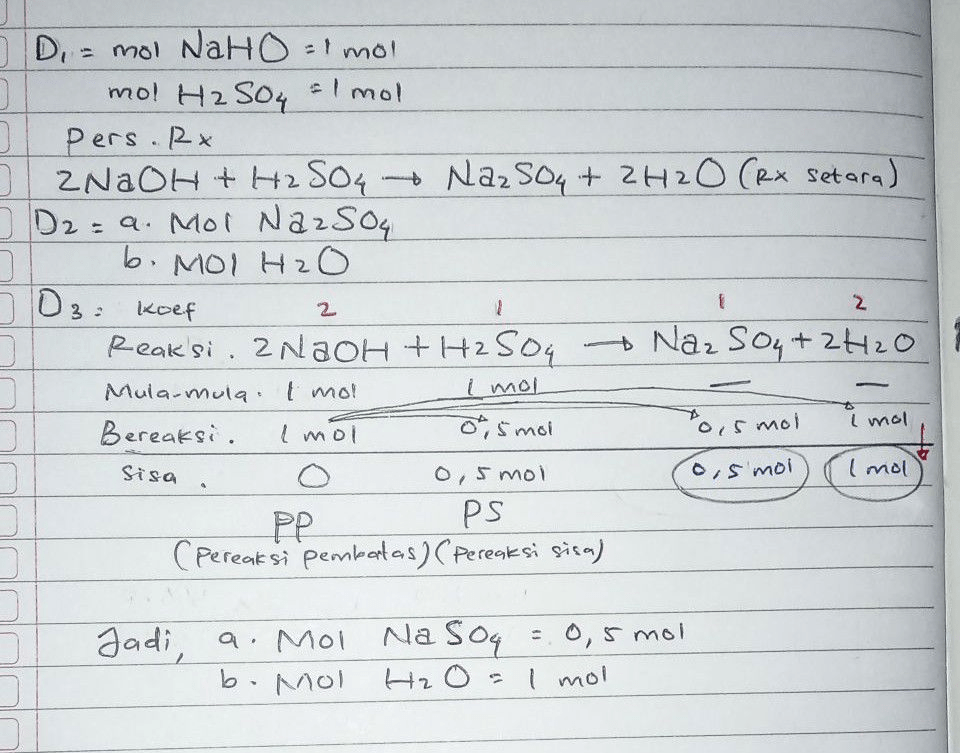 D1 = mol NaHO = 1 mol
mol H2SO4 = 1 mol
Pers. Rx
2NaOH + H2SO4 → Na2SO4 + 2H2O (Rx setara)
D2 = a. Mol Na2SO4
b. Mol H2O
D3 : koef 2 1 1 2
Reaksi. 2NaOH + H2SO4 → Na2SO4 + 2H2O
Mula-mula. 1 mol 1 mol — —
Bereaksi. 1 mol 0,5 mol 0,5 mol 1 mol
Sisa. 0 0,5 mol 0,5 mol 1 mol
PP PS
(Pereaksi pembatas) (Pereaksi sisa)
Jadi, a. Mol NaSO4 = 0,5 mol
b. Mol H2O = 1 mol